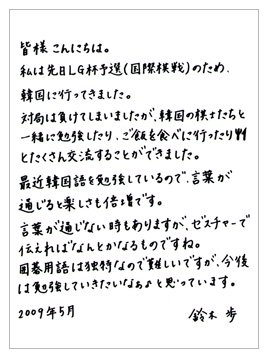 皆様こんにちは。
私は先日LG杯予選(国際棋戦)のため、
韓国に行ってきました。
対局は負けてしまいましたが、韓国の棋士たちと
一緒に勉強したり、ご飯を食べに行ったり
とたくさん交流することができました。
最近韓国語を勉強しているので、言葉が
通じると楽しさも倍増です。
言葉が通じない時もありますが、ゼスチャーで
伝えればなんとかなるものですね。
囲碁用語は独特なので難しいですが、今後
は勉強していきたいなぁと思っています。
2009年5月
鈴木 歩